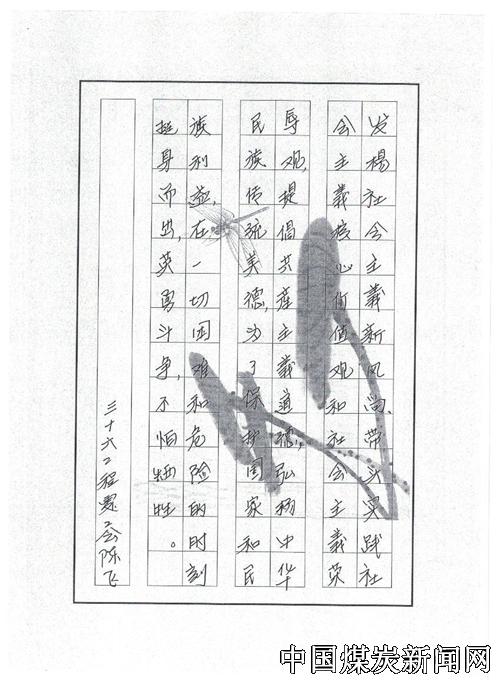 发楊社会主義新风尚、带头实践社
会主義核心价值观和社会主義荣
辱观,提倡共産主義道德,弘扬中华
民族传统美德,为了保护国家和民
族利益,在一切困难和危险的时刻
挺身而出,英勇斗争,不怕牺牲。
三十六工程處工会陈飞
中国煤炭新闻网